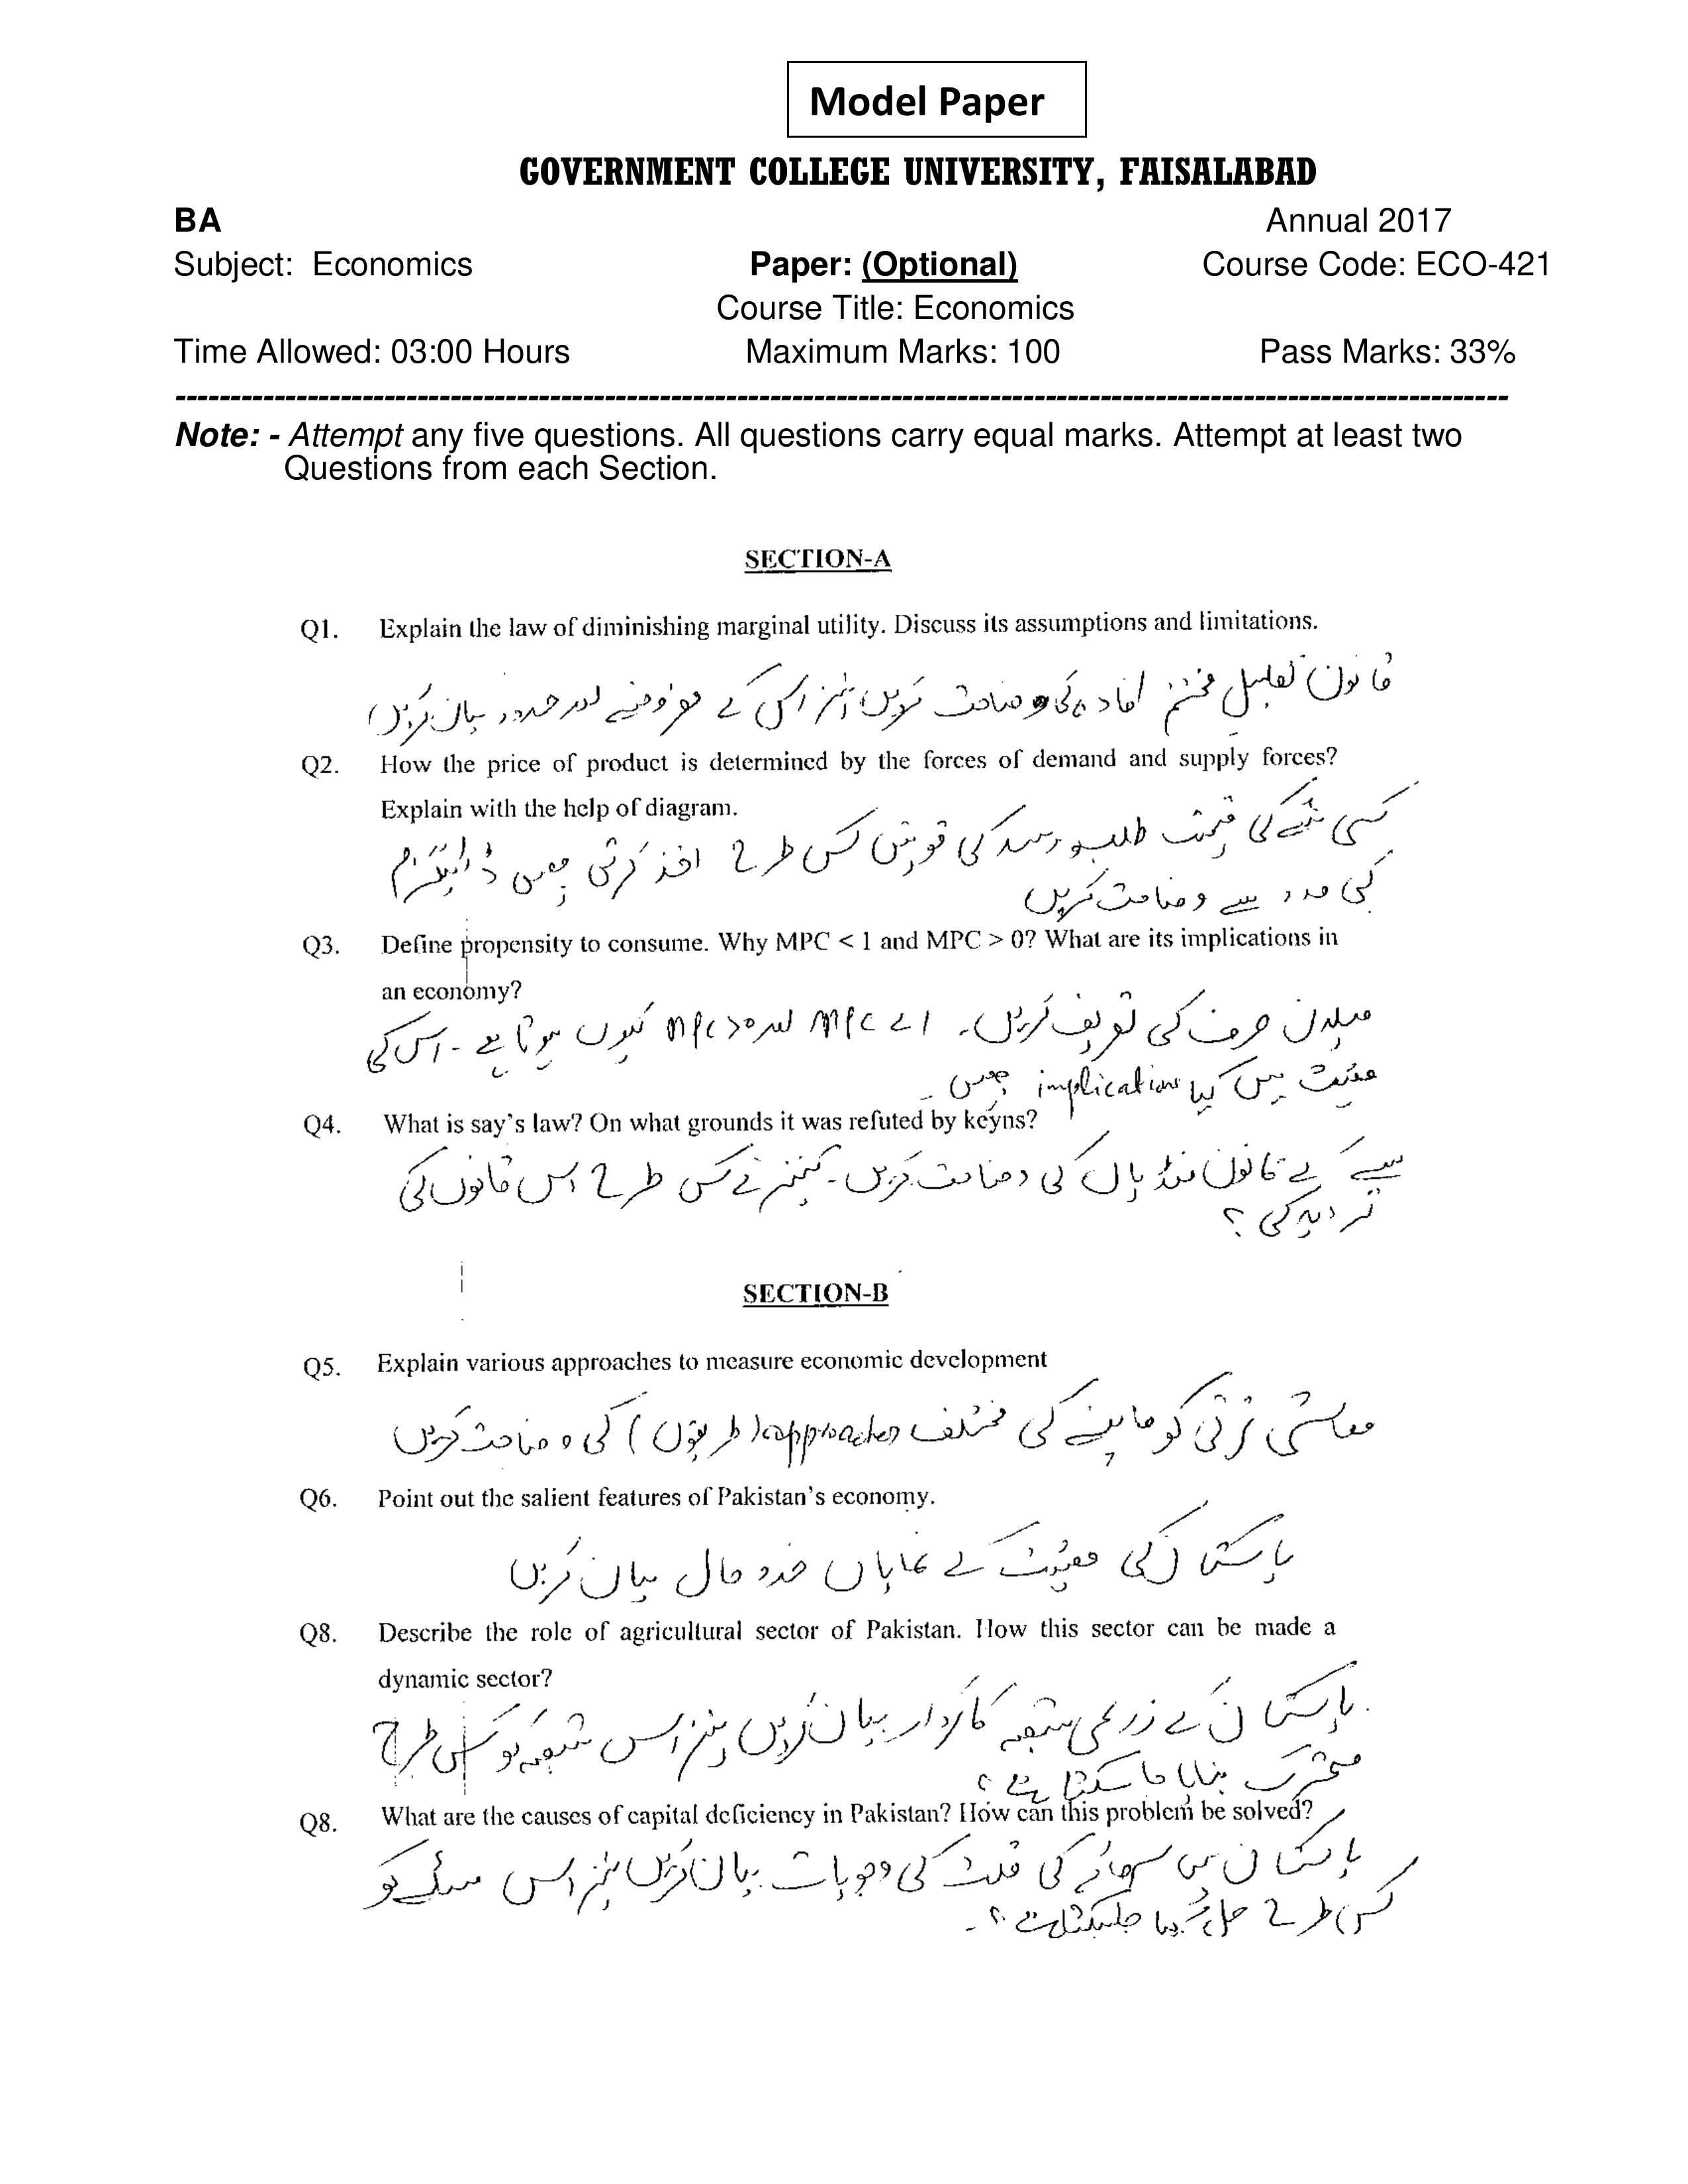 Model Paper
GOVERNMENT COLLEGE UNIVERSITY, FAISALABAD
BA Annual 2017
Subject: Economics Paper: (Optional) Course Code: ECO-421
Course Title: Economics
Time Allowed: 03:00 Hours Maximum Marks: 100 Pass Marks: 33%
Note: - Attempt any five questions. All questions carry equal marks. Attempt at least two
Questions from each Section.
SECTION-A
Q1. Explain the law of diminishing marginal utility. Discuss its assumptions and limitations.
قانون تقلیل مختتم افادہ کی وضاحت کریں نیز اس کے مفروضے اور حدود بیان کریں
Q2. How the price of product is determined by the forces of demand and supply forces?
Explain with the help of diagram.
کسی شے کی قیمت طلب و رسد کی قوتیں کس طرح اخذ کرتی ہیں ڈائیگرام
کی مدد سے وضاحت کریں
Q3. Define propensity to consume. Why MPC < 1 and MPC > 0? What are its implications in
an economy?
میلان صرف کی تعریف کریں۔ MPC < 1 اور MPC > 0 کیوں ہوتا ہے - اس کی
معیشت میں کیا implication ہیں -
Q4. What is say's law? On what grounds it was refuted by keyns?
سے کے قانون منڈیاں کی وضاحت کریں - کینز نے کس طرح اس قانون کی
تردید کی ؟
SECTION-B
Q5. Explain various approaches to measure economic development
معاشی ترقی کو ماپنے کی مختلف approaches (طریقوں) کی وضاحت کریں
Q6. Point out the salient features of Pakistan's economy.
پاکستان کی معیشت کے نمایاں خدوخال بیان کریں
Q8. Describe the role of agricultural sector of Pakistan. How this sector can be made a
dynamic sector?
پاکستان کے زرعی شعبہ کا کردار بیان کریں نیز اس شعبہ کو کس طرح
متحرک بنایا جا سکتا ہے ؟
Q8. What are the causes of capital deficiency in Pakistan? How can this problem be solved?
پاکستان میں سرمائے کی قلت کی وجوہات بیان کریں نیز اس مسئلے کو
کس طرح حل کیا جاسکتا ہے ؟-